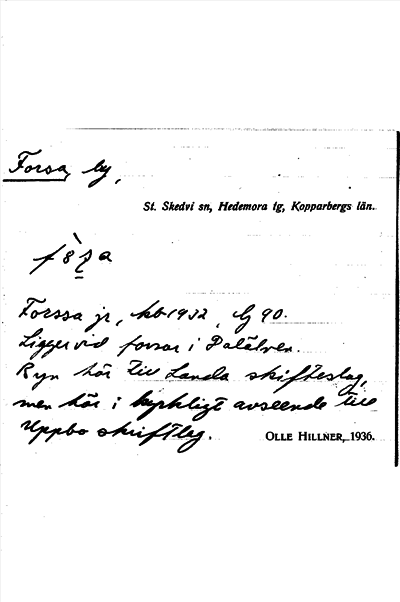 Forsa, by,
St. Skedvi sn, Hedemora tg, Kopparbergs län.
Forssa jr, kb 1932, lg 90.
Ligger vid forsar i Dalälven.
Byn hör till Landa skifteslag,
men hör i kyrkligt avseende till
Uppbo skriftlag.
OLLE HILLNER, 1936.